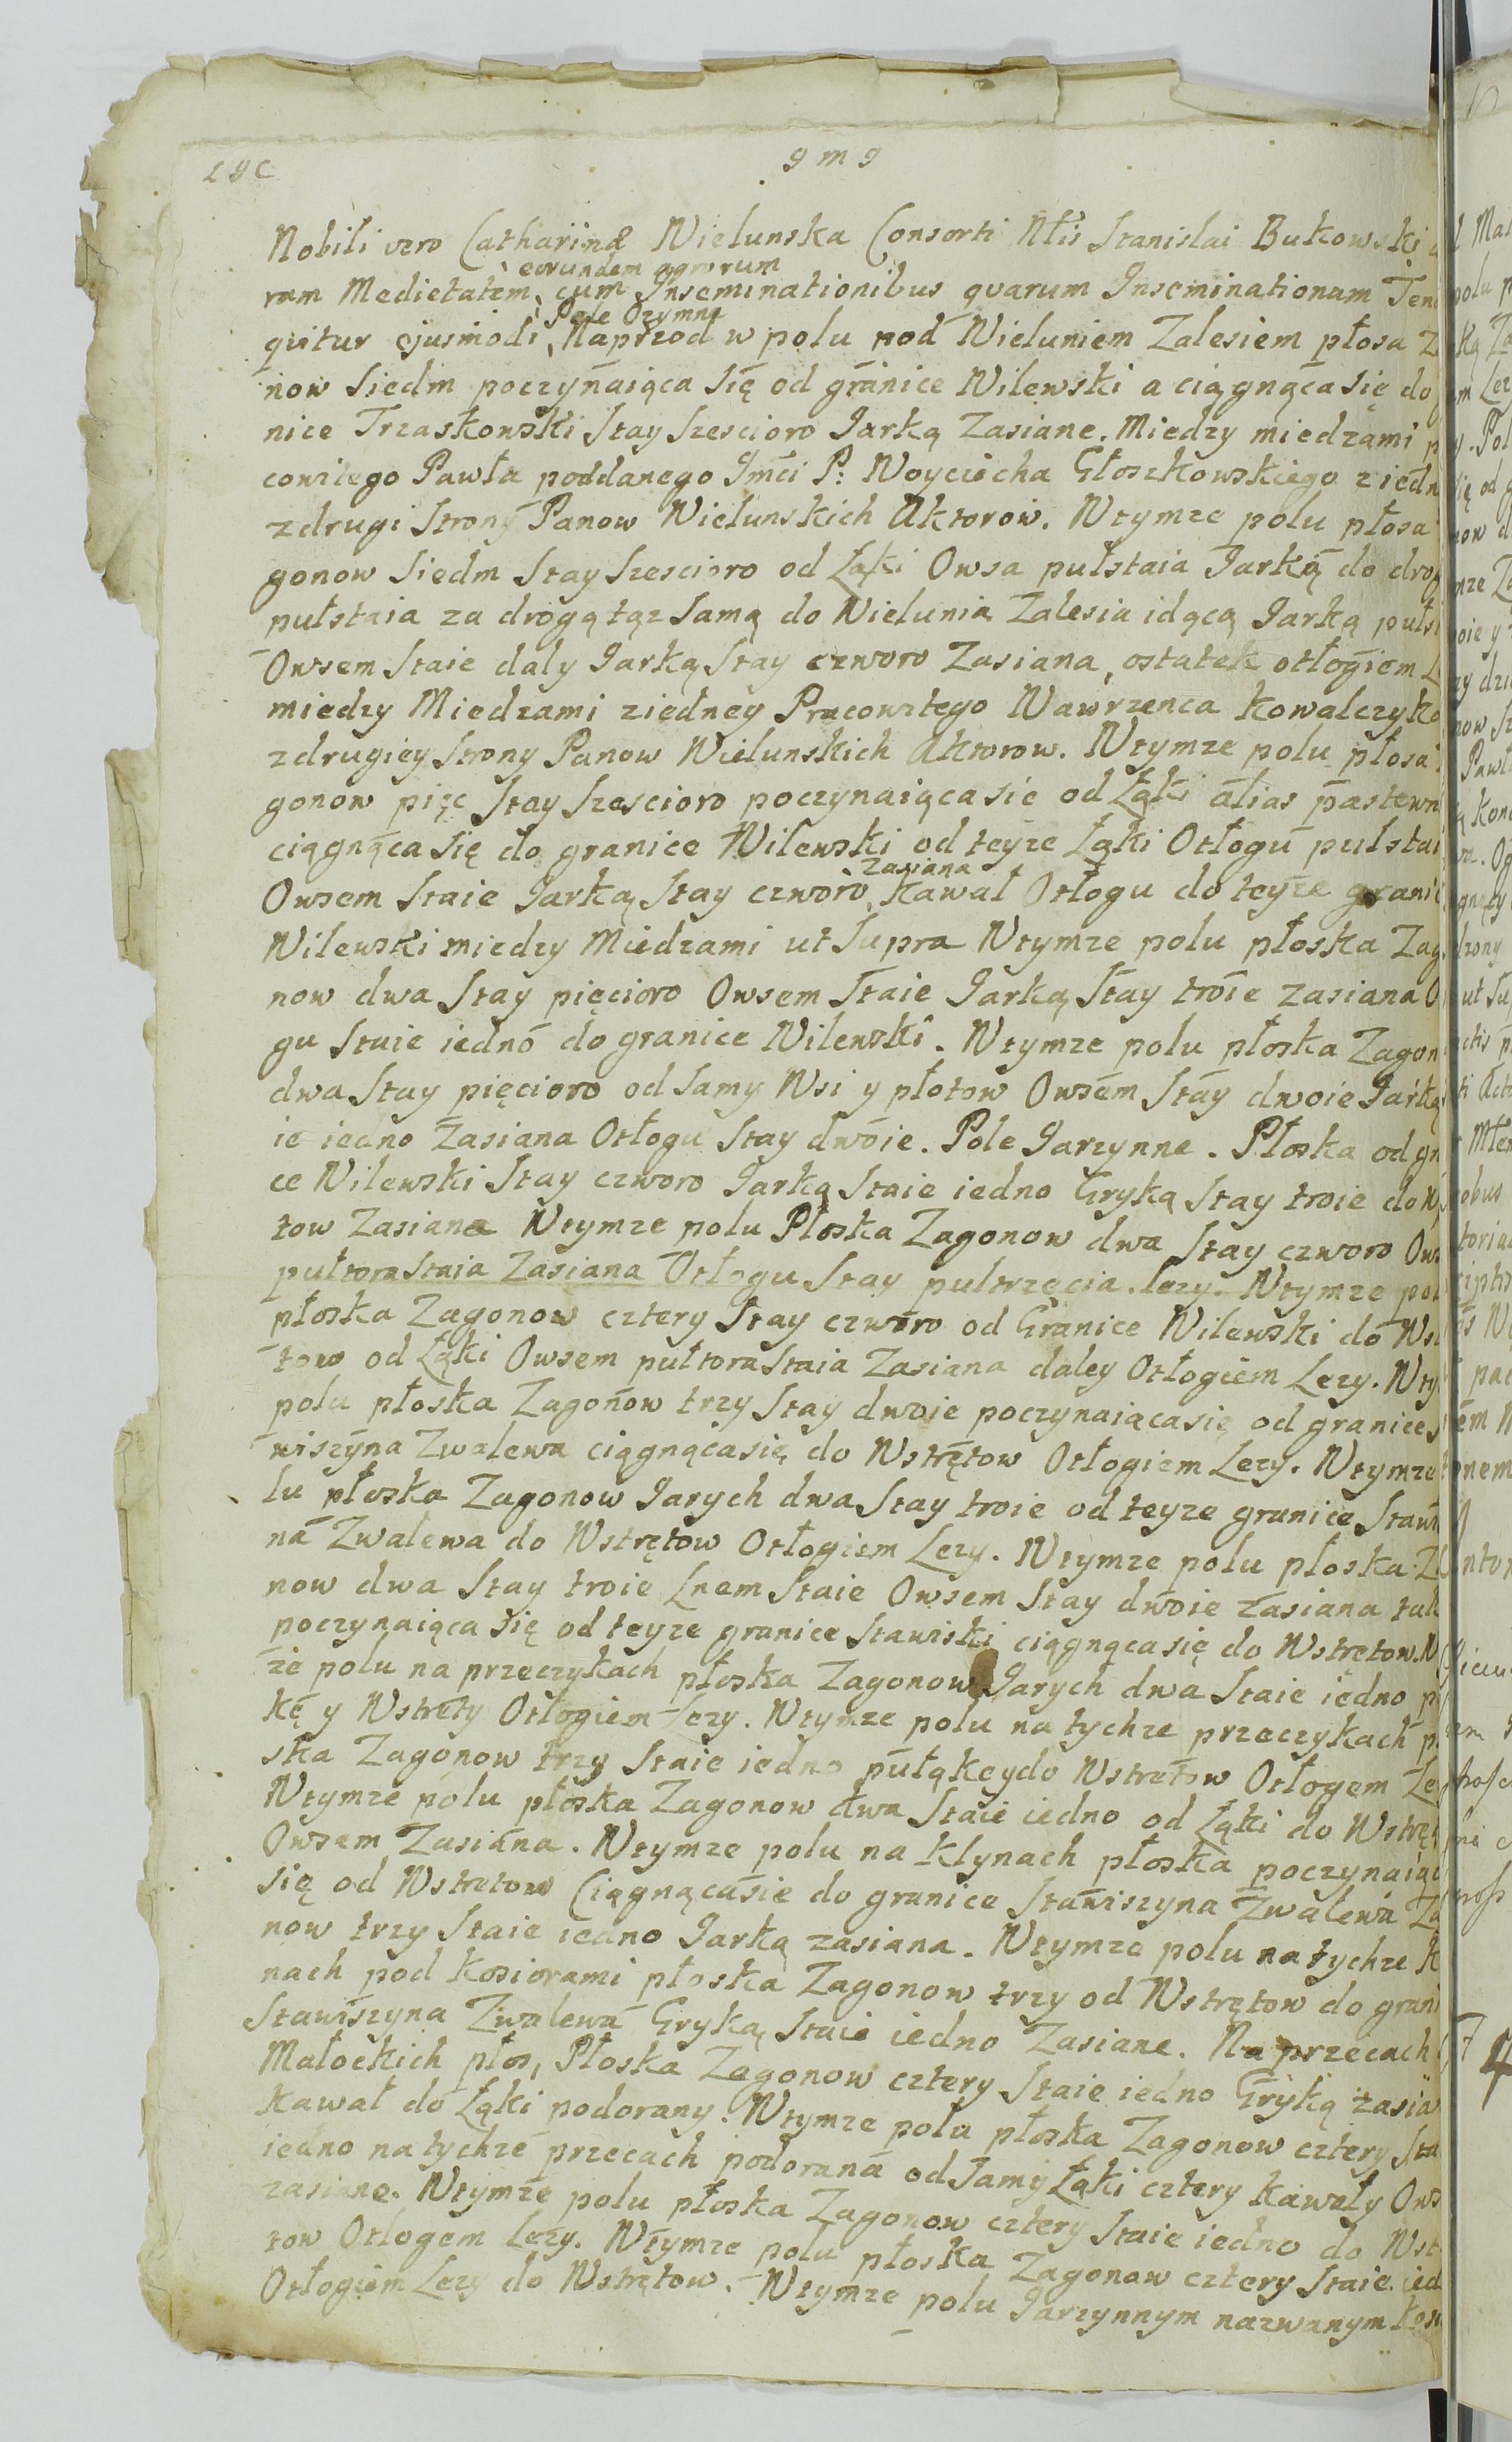 g m g
Nobili vero Catharinæ Wielunska Consorti Nlis Stanislai Bukowski
eorundem agrorum
ram Medietatem, cum Inseminationibus quarum Inseminationum Ten
Pole Ozymne
quitur ejusmodi, Naprzod w polu pod Wieluniem Zalesiem płosa Z
now Siedm poczynaiąca się od granice Wilewski a ciągnąca się do
nice Trzaskowski Stay Szescioro Jarką Zasiane. Miedzy miedzami p
cowitego Pawła poddanego Jmci P: Woyciecha Głoszkowskiego z iedn
z drugi Strony Panow Wielunskich Aktorow. Wtymze polu płosa
gonow Siedm Stay Szescioro od Łąki Owsa pułstaia Jarką do drog
pułstaia za drogą tąz Samą do Wielunia Zalesia idącą Jarką pułs
Owsem Staie daly Jarką Stay czworo Zasiana, ostatek otłogiem L
miedzy Miedzami ziedney Pracowitego Wawrzenca Kowalczyka
zdrugiey Strony Panow Wielunskich Aktorow. Wtymze polu płosa
gonow pięc Stay Szescioro poczynaiąca sie od Łąki alias pastewn
ciągnąca się do granice Wilewski od teyze Łąki Otłogu pulstai
zasiana
Owsem Staie Jarką Stay czworo, Kawał Otłogu do teyze granic
Wilewski miedzy Miedzami ut Supra Wtymze polu płoska Zag
now dwa Stay pięcioro Owsem Staie Jarką Stay troie zasiana O
gu Staie iedno do granice Wilewski. Wtymze polu płoska Zagon
dwa Stay pięcioro od Samy Wsi y płotow Owsem Stay dwoie Jarką
ie iedno Zasiana Otłogu Stay dwoie. Pole Jarzynne. Płoska od gr
ce Wilewski Stay czworo Jarką Staie iedno Gryką Stay troie do W
tow Zasiana Wtymze polu Płoska Zagonow dwa Stay czworo Ows
pułtora Staia Zasiana Otłogu Stay pultrzecia lezy. Wtymze pol
płoska Zagonow cztery Stay czworo od Granice Wilewski do Ws
tow od Łąki Owsem pułtora Staia Zasiana daley Otłogiem Lezy. Wty
polu płoska Zagonow trzy Stay dwoie poczynaiąca się od granice S
wiszyna Zwalewa ciągnąca się do Wstrętow Otłogiem Lezy. Wtymze
lu płoska Zagonow Jarych dwa Stay troie od teyze granice Stawi
na Zwalewa do Wstrętow Otłogiem Lezy. Wtymze polu płoska Z
now dwa Stay troie Lnem Staie Owsem Stay dwoie zasiana tak
poczynaiąca się od teyze granice Stawiski ciągnąca się do Wstrętow. W
ze polu na przeczykach płoska Zagonow Jarych dwa Staie iedno p
kę y Wstręty Otłogiem Lezy. Wtymze polu na tychze przeczykach p
ska Zagonow trzy Staie iedno pułąkeydo Wstrętow Otłogem Le
Wtymze polu płoska Zagonow dwa Staie iedno od Łąki do Wstrę
Owsem Zasiana. Wtymze polu na Klynach płoska poczynaiąc
się od Wstrętow Ciągnącasie do granice Stawiszyna Zwalewa Za
now trzy Staie iedno Jarką zasiana. Wtymze polu na tychze K
nach pod Kosiorami płoska Zagonow trzy od Wstrętow do grani
Stawiszyna Zwalewa Gryką Staie iedno Zasiane. Na przecach
Małockich płos, Płoska Zagonow cztery Staie iedno Gryką zasia
Kawał do Łąki podorany. Wtymze polu płoska Zagonow cztery Sta
iedno na tychze przecach podorana od Samy Łąki cztery Kawały Ows
zasiane. Wtymze polu płoska Zagonow cztery Staie iedno do Wst
tow Otlogem Lezy. Wtymze polu płoska Zagonow cztery Staie ied
Otłogiem Lezy do Wstrętow. Wtymze polu Jarzynnym nazwanym Kos